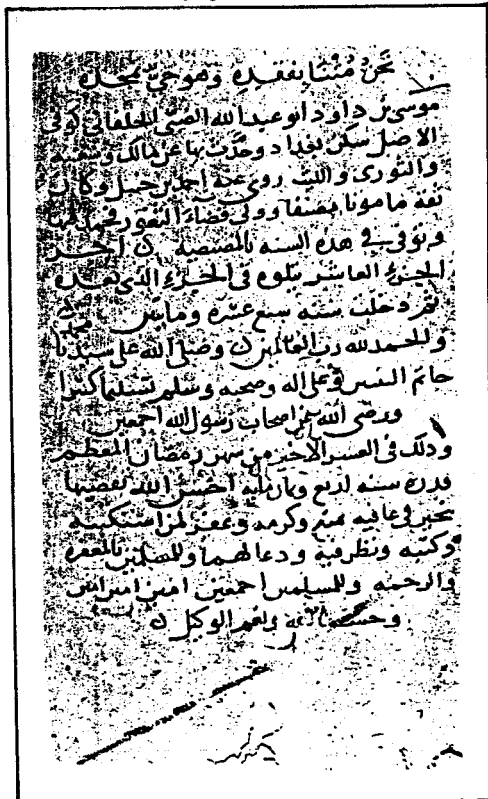 نحن متنا بفقده وهو حي بمجده
موسى بن داود ابو عبد الله الضبي الخلقاني كوفي
الاصل سكن بغداد وحدث بها عن مالك وشعبة
والثوري والليث روى عنه احمد بن حنبل وكان
ثقة مامونا مصنفا وولى قضاء الثغور
وتوفي في هذه السنه بالمصيصه اخر
الجزء العاشر يتلوه في الجزء الذي بعده
ثم دخلت سنة سبع عشرة ومايتين
والحمد لله رب العالمين وصلى الله على سيدنا محمد
خاتم النبيين وعلى اله وصحبه وسلم تسليما كثيرا
ورضي الله عن اصحاب رسول الله اجمعين
وذلك في العشر الاخير من شهر رمضان المعظم
قدره سنه اربع وثمان مايه احسن الله تقضيها
بخير في عافيه بمنه وكرمه وغفر لمن استكتبه
وكتبه ونظر فيه ودعا لهما وللمسلمين بالمغفره
والرحمه وللمسلمين اجمعين امين امين امين
وحسبنا الله ونعم الوكيل